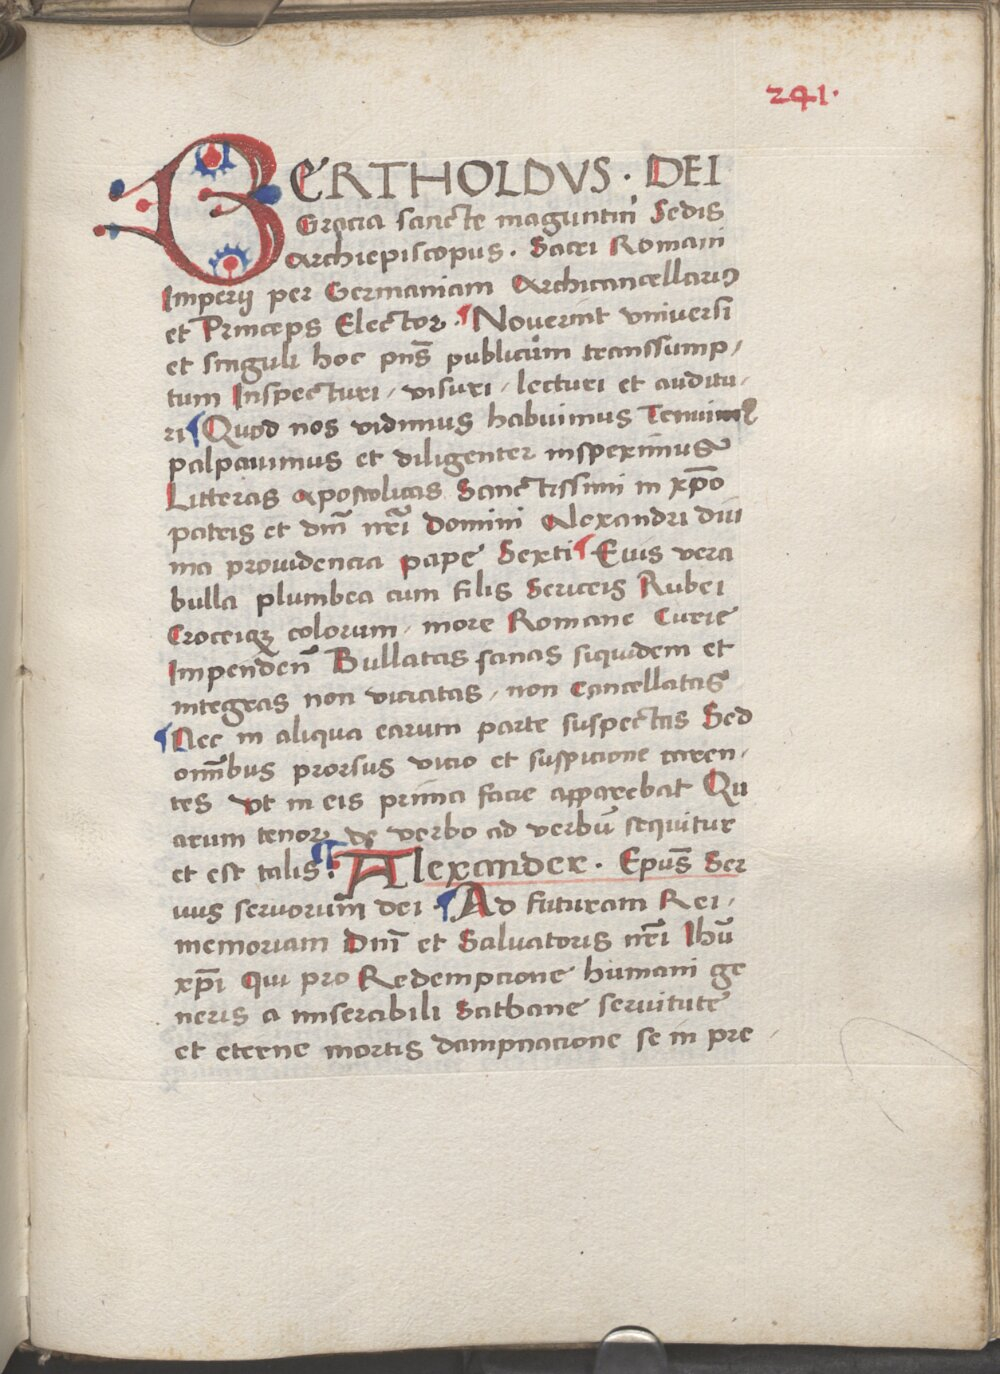 241.
BERTHOLDVS · DEI
Gracia sancte maguntin̄ Sedis
Archiepiscopus . Sacri Romani
Imperij per Germaniam Archicancellariꝰ
et Princeps Elector . ¶ Nouerint vniuersi
et singuli hoc pn̄s publicum transsump/
tum Inspecturi / visuri / lecturi et auditu/
ri ¶ Quod nos vidimus habuimus Tenuimꝰ
palpauimus et diligenter inspeximus
Litteras apostolicas Sanctissimi in xp̄o
patris et dn̄i nr̄i Domini Alexandri diui
na prouidencia pape Sexti ¶ Eius vera
bulla plumbea cum filis Sericeis Rubei
Croceiqꝫ colorum / more Romane Curie
Impenden̄ Bullatas sanas siquidem et
integras non viciatas / non Cancellatas
¶ Nec in aliqua earum parte suspectas Sed
om̄ibus prorsus vicio et suspicione caren/
tes vt in eis prima facie apparebat Qu
arum tenor de verbo ad verbū sequitur
et est talis . ¶ Alexander . Ep̄us Ser
uus seruorum dei . ¶ Ad futuram Rei /
memoriam Dn̄i et Saluatoris nr̄i Ihū
xp̄i Qui pro Redempcione humani ge
neris a miserabili Sathane seruitute
et eterne mortis dampnacione se in pre /